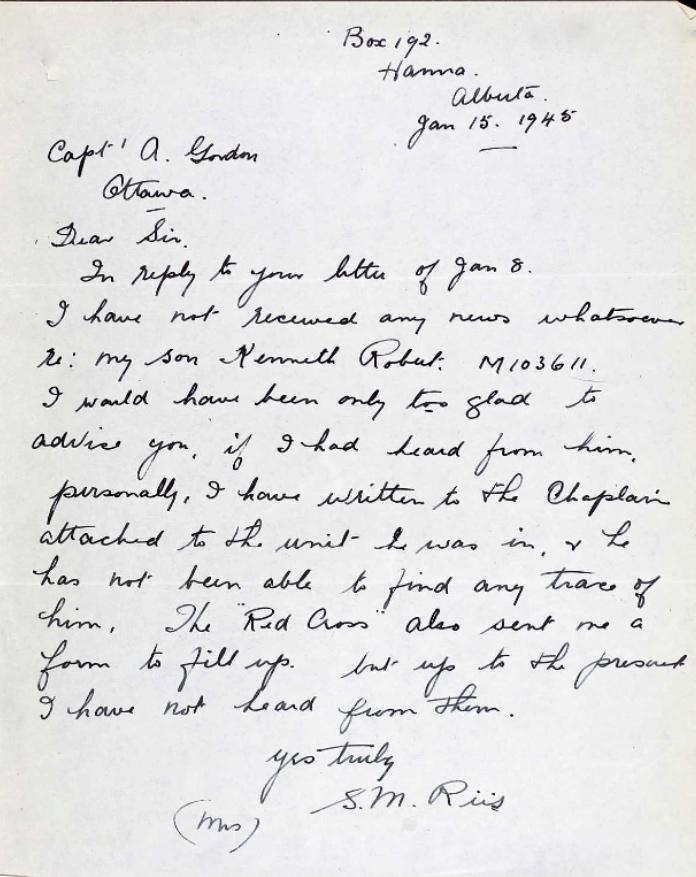 Box 192.
Hanna.
Alberta.
Jan 15. 1945
Capt' A. Gordon
Ottawa.
Dear Sir.
In reply to your letter of Jan 8.
I have not received any news whatsoever
re: my son Kenneth Robert. M103611.
I would have been only too glad to
advise you, if I had heard from him,
personally, I have written to the Chaplain
attached to the unit he was in, & he
has not been able to find any trace of
him. The "Red Cross" also sent me a
form to fill up. but up to the present
I have not heard from them.
yrs truly
S.M. Riis
(Mrs)